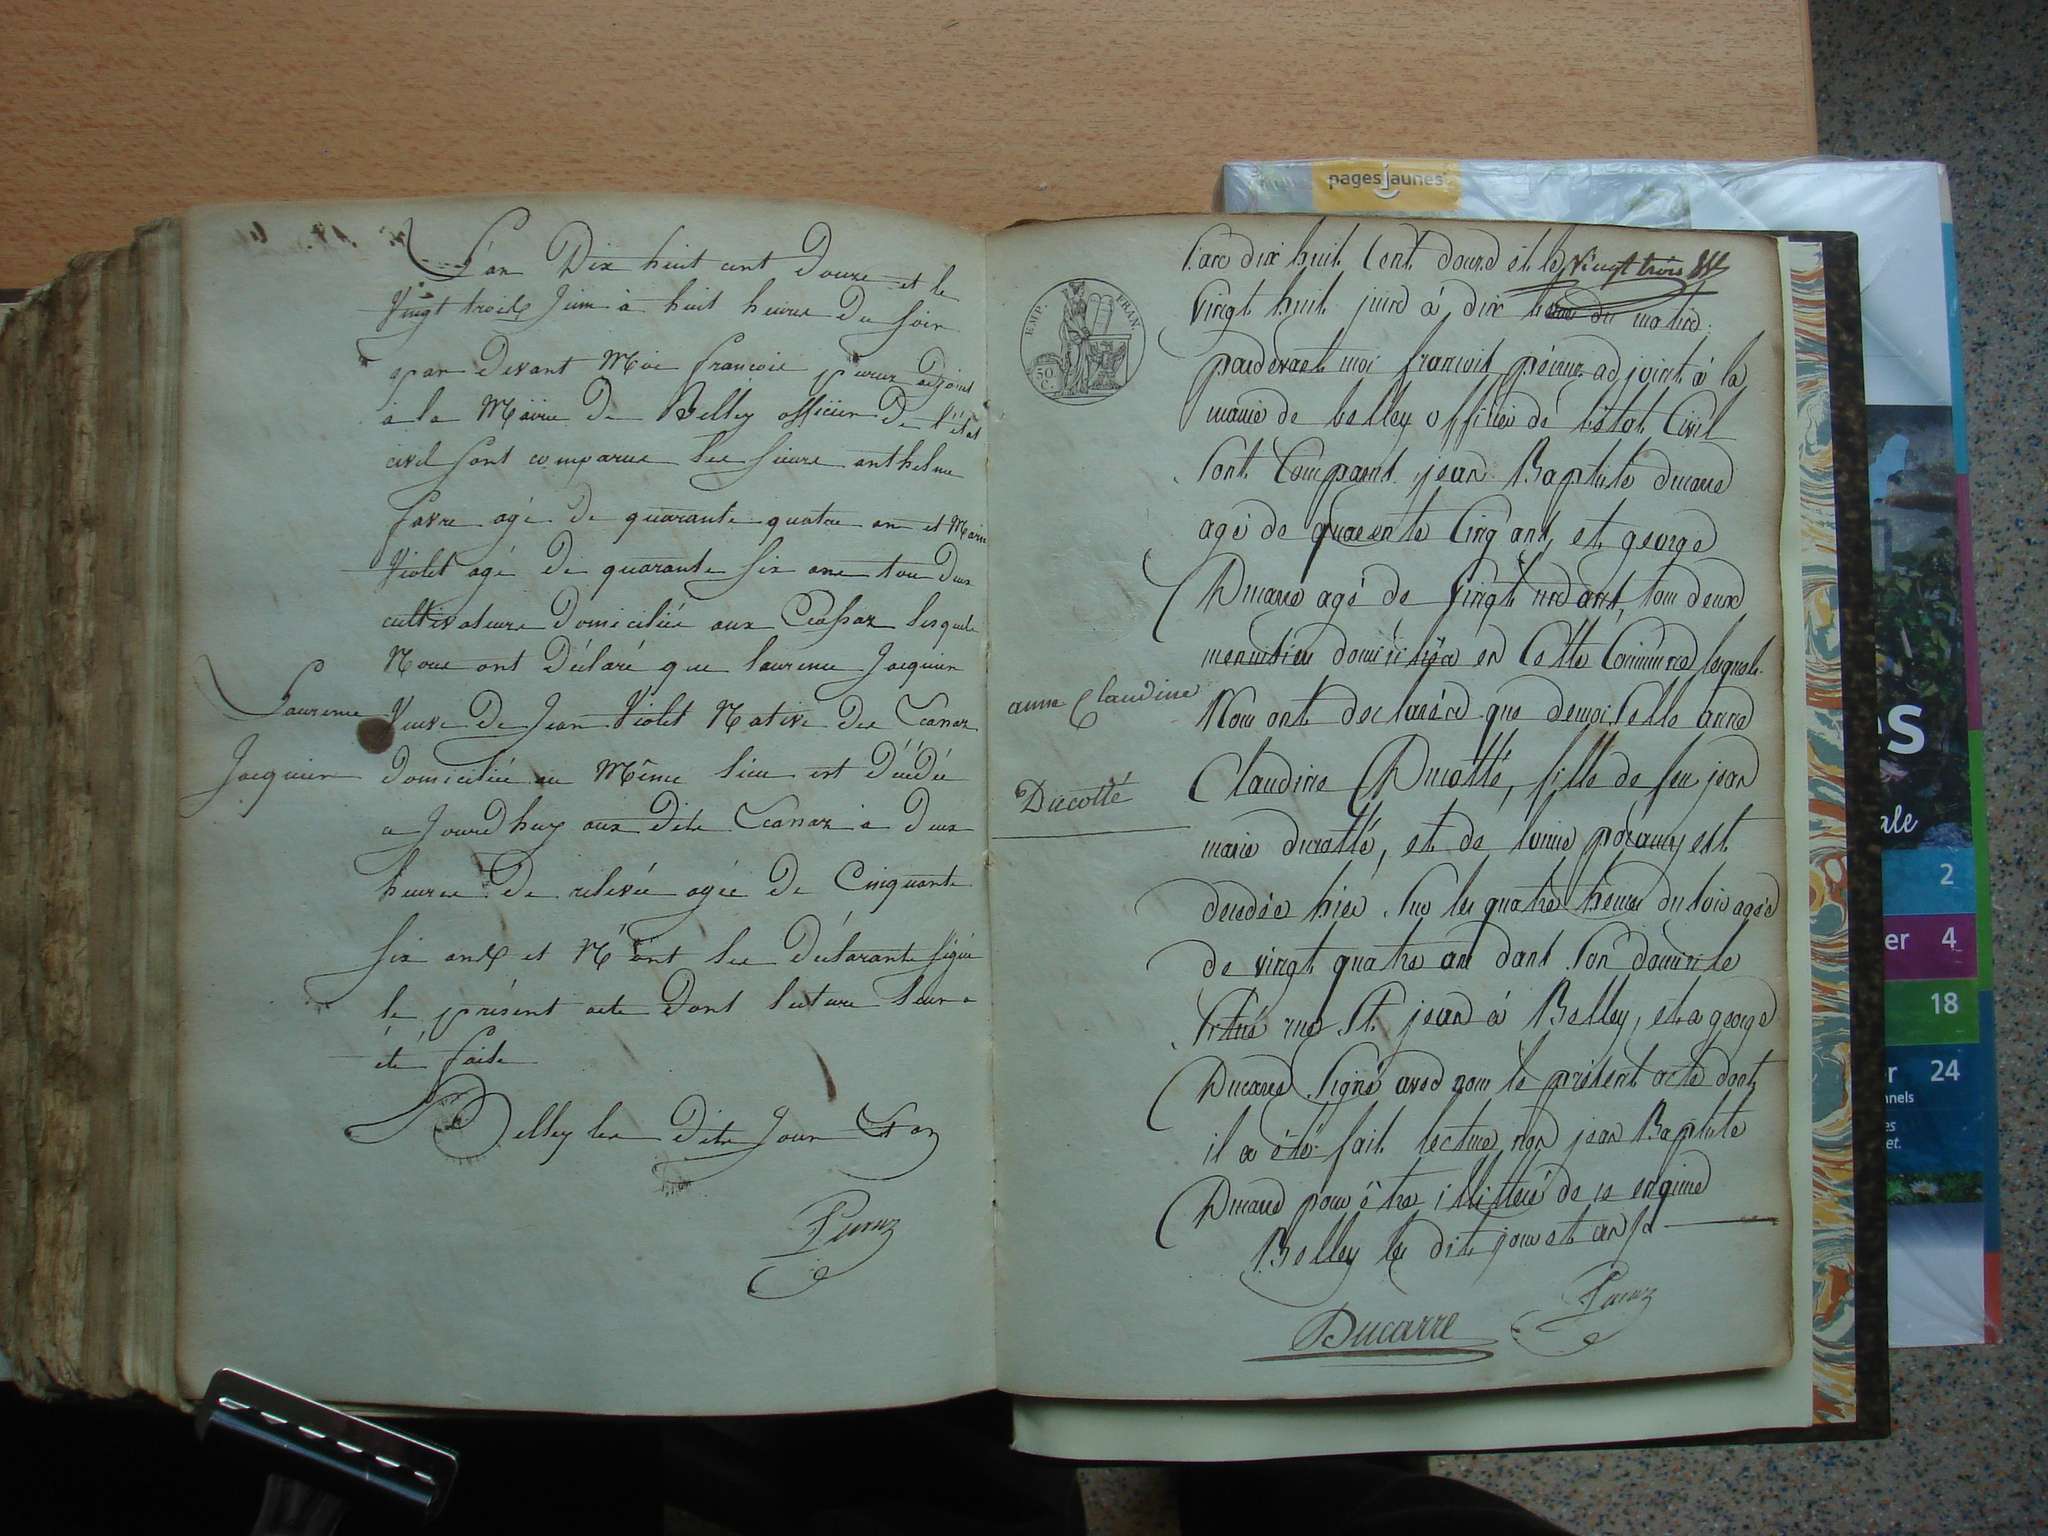 L'an Dix huit cent Douze et le
Vingt trois Juin à huit heures Du soir
par Devant Moi francois peruz adjoint
à la Mairie De Belley officier De l'état
civil sont comparus les sieurs anthelme
favre agé de quarante quatre ans et Marin
Violet agé De quarante six ans tou Deux
cultivateurs Domiciliés aux lesquels
Nous ont Déclaré que laurence Jacquier
Veuve De Jean Violet Native Des Ecassaz
Domiciliée au Même lieu est Décédée
a Jourd'huy aux Dits Ecassaz à Deux
heures De relevée agée De Cinquante
six ans et N'ont les Déclarants signé
le présent acte Dont lecture leur a
été faite
Belley les Dits Jour & an
Peruz
Laurence
Jacquier
EMP. FRAN.
50 C.
l'an dix huit Cent douze et le vingt trois
vingt huit juin à dix heure du matin
pardevant moi francois péruz adjoint à la
mairie de belley officier de l'état Civil
sont Comparut jean Baptiste ducarre
agé de quarente Cinq ans, et george
Ducarre agé de vingt neuf ans, tous deux
menuisier domicilié en Cette Commune lesquels
Nous ont declaréré que demoiselle anne
Claudine Ducotté, fille de feu jean
marie ducotté, et de est
decedée hier sur les quatre heures du soir agée
de vingt quatre ans dans son domicile
situé rue St jean à Belley, et a george
Ducarre signé avec nous le présent acte dont
il a été fait lecture, non jean Baptiste
Ducarre pour être illitteré de ce enquis
Belley les dits jour et an
Ducarre
Peruz
anne Claudine
Ducotté
pagesjaunes
es
ale
2
er 4
18
r 24
nnels
es
et.